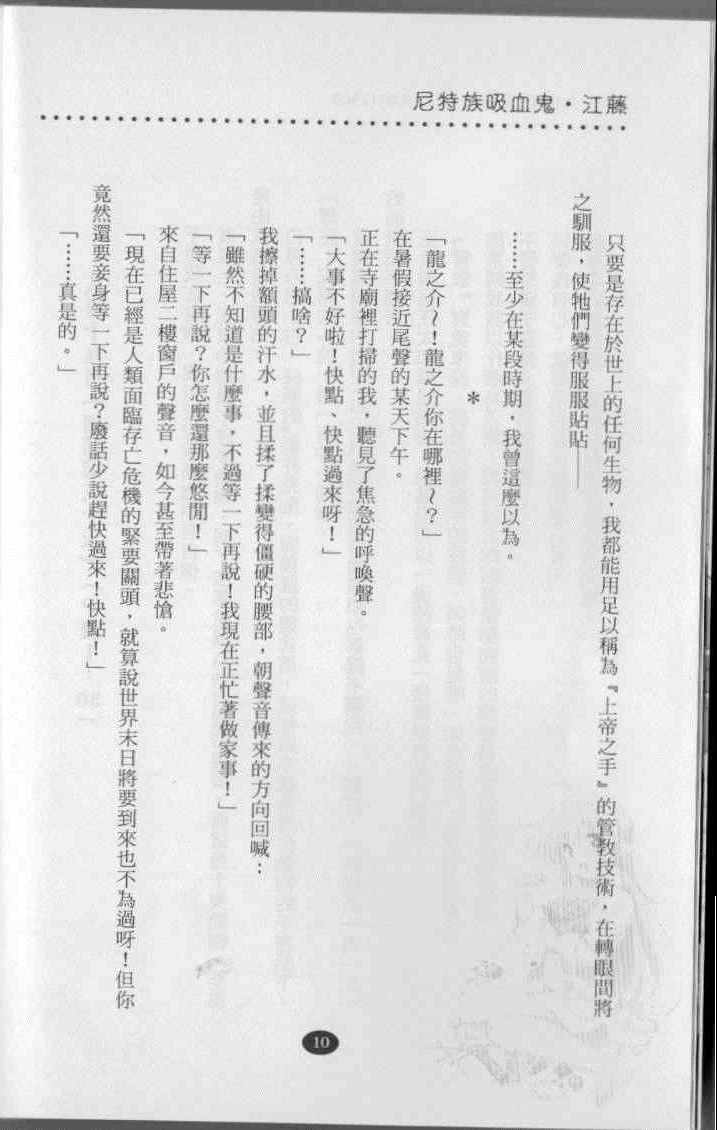 尼特族吸血鬼・江藤
只要是存在於世上的任何生物，我都能用足以稱為『上帝之手』的管教技術，在轉眼間將
之馴服，使牠們變得服服貼貼——
……至少在某段時期，我曾這麼以為。
＊
「龍之介～！龍之介你在哪裡～？」
在暑假接近尾聲的某天下午。
正在寺廟裡打掃的我，聽見了焦急的呼喚聲。
「大事不好啦！快點、快點過來呀！」
「……搞啥？」
我擦掉額頭的汗水，並且揉了揉變得僵硬的腰部，朝聲音傳來的方向回喊：
「雖然不知道是什麼事，不過等一下再說！我現在正忙著做家事！」
「等一下再說？你怎麼還那麼悠閒！」
來自住屋二樓窗戶的聲音，如今甚至帶著悲愴。
「現在已經是人類面臨存亡危機的緊要關頭，就算說世界末日將要到來也不為過呀！但你
竟然還要妾身等一下再說？廢話少說趕快過來！快點！」
「……真是的。」
10